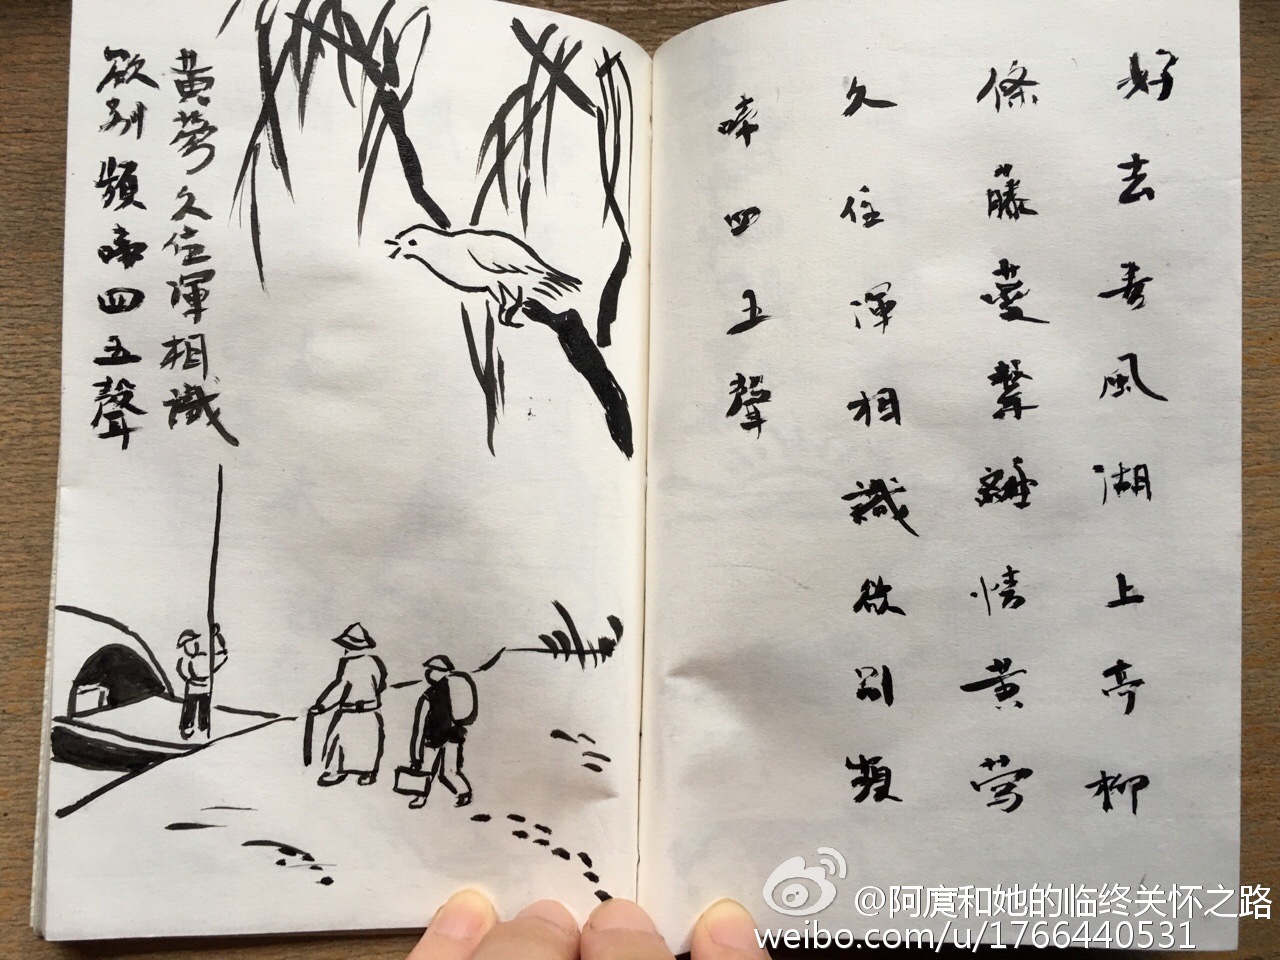 好去春風湖上亭柳
條藤蔓繫離情黄莺
久住渾相識欲别頻
啼四五聲
黄莺久住渾相識
欲别頻啼四五聲
@阿庹和她的临终关怀之路
weibo.com/u/1766440531